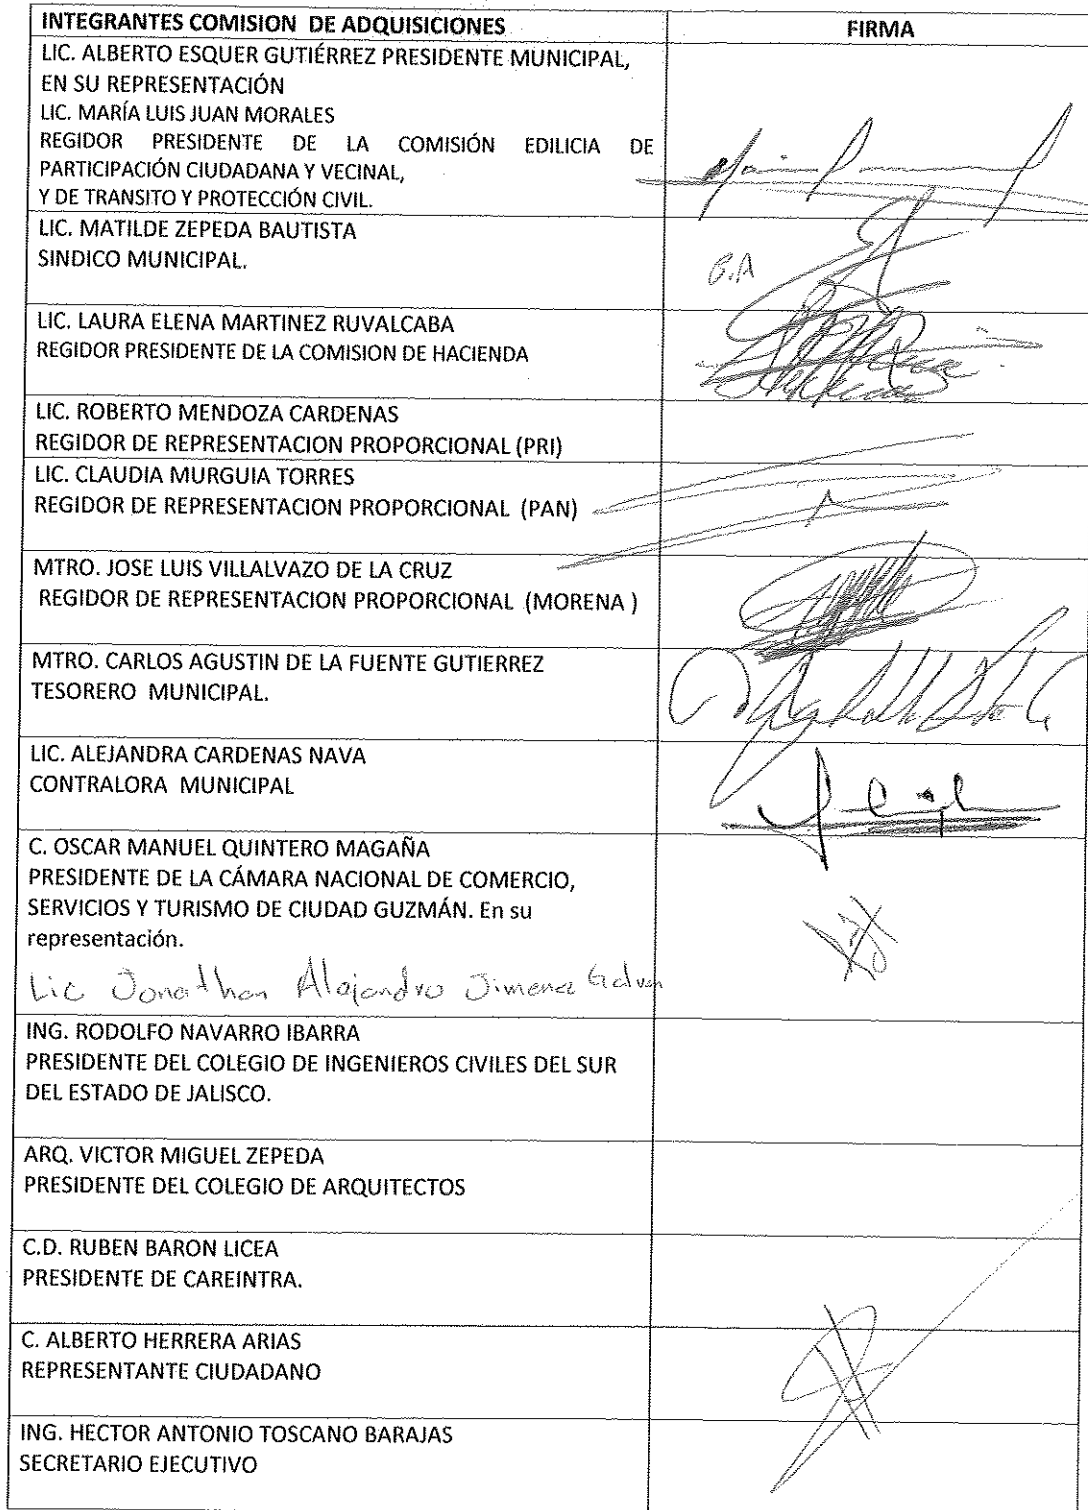 INTEGRANTES COMISION DE ADQUISICIONES
FIRMA
LIC. ALBERTO ESQUER GUTIÉRREZ PRESIDENTE MUNICIPAL,
EN SU REPRESENTACIÓN
LIC. MARÍA LUIS JUAN MORALES
REGIDOR PRESIDENTE DE LA COMISIÓN EDILICIA DE
PARTICIPACIÓN CIUDADANA Y VECINAL,
Y DE TRANSITO Y PROTECCIÓN CIVIL.
LIC. MATILDE ZEPEDA BAUTISTA
SINDICO MUNICIPAL.
LIC. LAURA ELENA MARTINEZ RUVALCABA
REGIDOR PRESIDENTE DE LA COMISION DE HACIENDA
LIC. ROBERTO MENDOZA CARDENAS
REGIDOR DE REPRESENTACION PROPORCIONAL (PRI)
LIC. CLAUDIA MURGUIA TORRES
REGIDOR DE REPRESENTACION PROPORCIONAL (PAN)
MTRO. JOSE LUIS VILLALVAZO DE LA CRUZ
REGIDOR DE REPRESENTACION PROPORCIONAL (MORENA )
MTRO. CARLOS AGUSTIN DE LA FUENTE GUTIERREZ
TESORERO MUNICIPAL.
LIC. ALEJANDRA CARDENAS NAVA
CONTRALORA MUNICIPAL
C. OSCAR MANUEL QUINTERO MAGAÑA
PRESIDENTE DE LA CÁMARA NACIONAL DE COMERCIO,
SERVICIOS Y TURISMO DE CIUDAD GUZMÁN. En su
representación.
Lic Jonathan Alejandro Jimenez Galvan
ING. RODOLFO NAVARRO IBARRA
PRESIDENTE DEL COLEGIO DE INGENIEROS CIVILES DEL SUR
DEL ESTADO DE JALISCO.
ARQ. VICTOR MIGUEL ZEPEDA
PRESIDENTE DEL COLEGIO DE ARQUITECTOS
C.D. RUBEN BARON LICEA
PRESIDENTE DE CAREINTRA.
C. ALBERTO HERRERA ARIAS
REPRESENTANTE CIUDADANO
ING. HECTOR ANTONIO TOSCANO BARAJAS
SECRETARIO EJECUTIVO